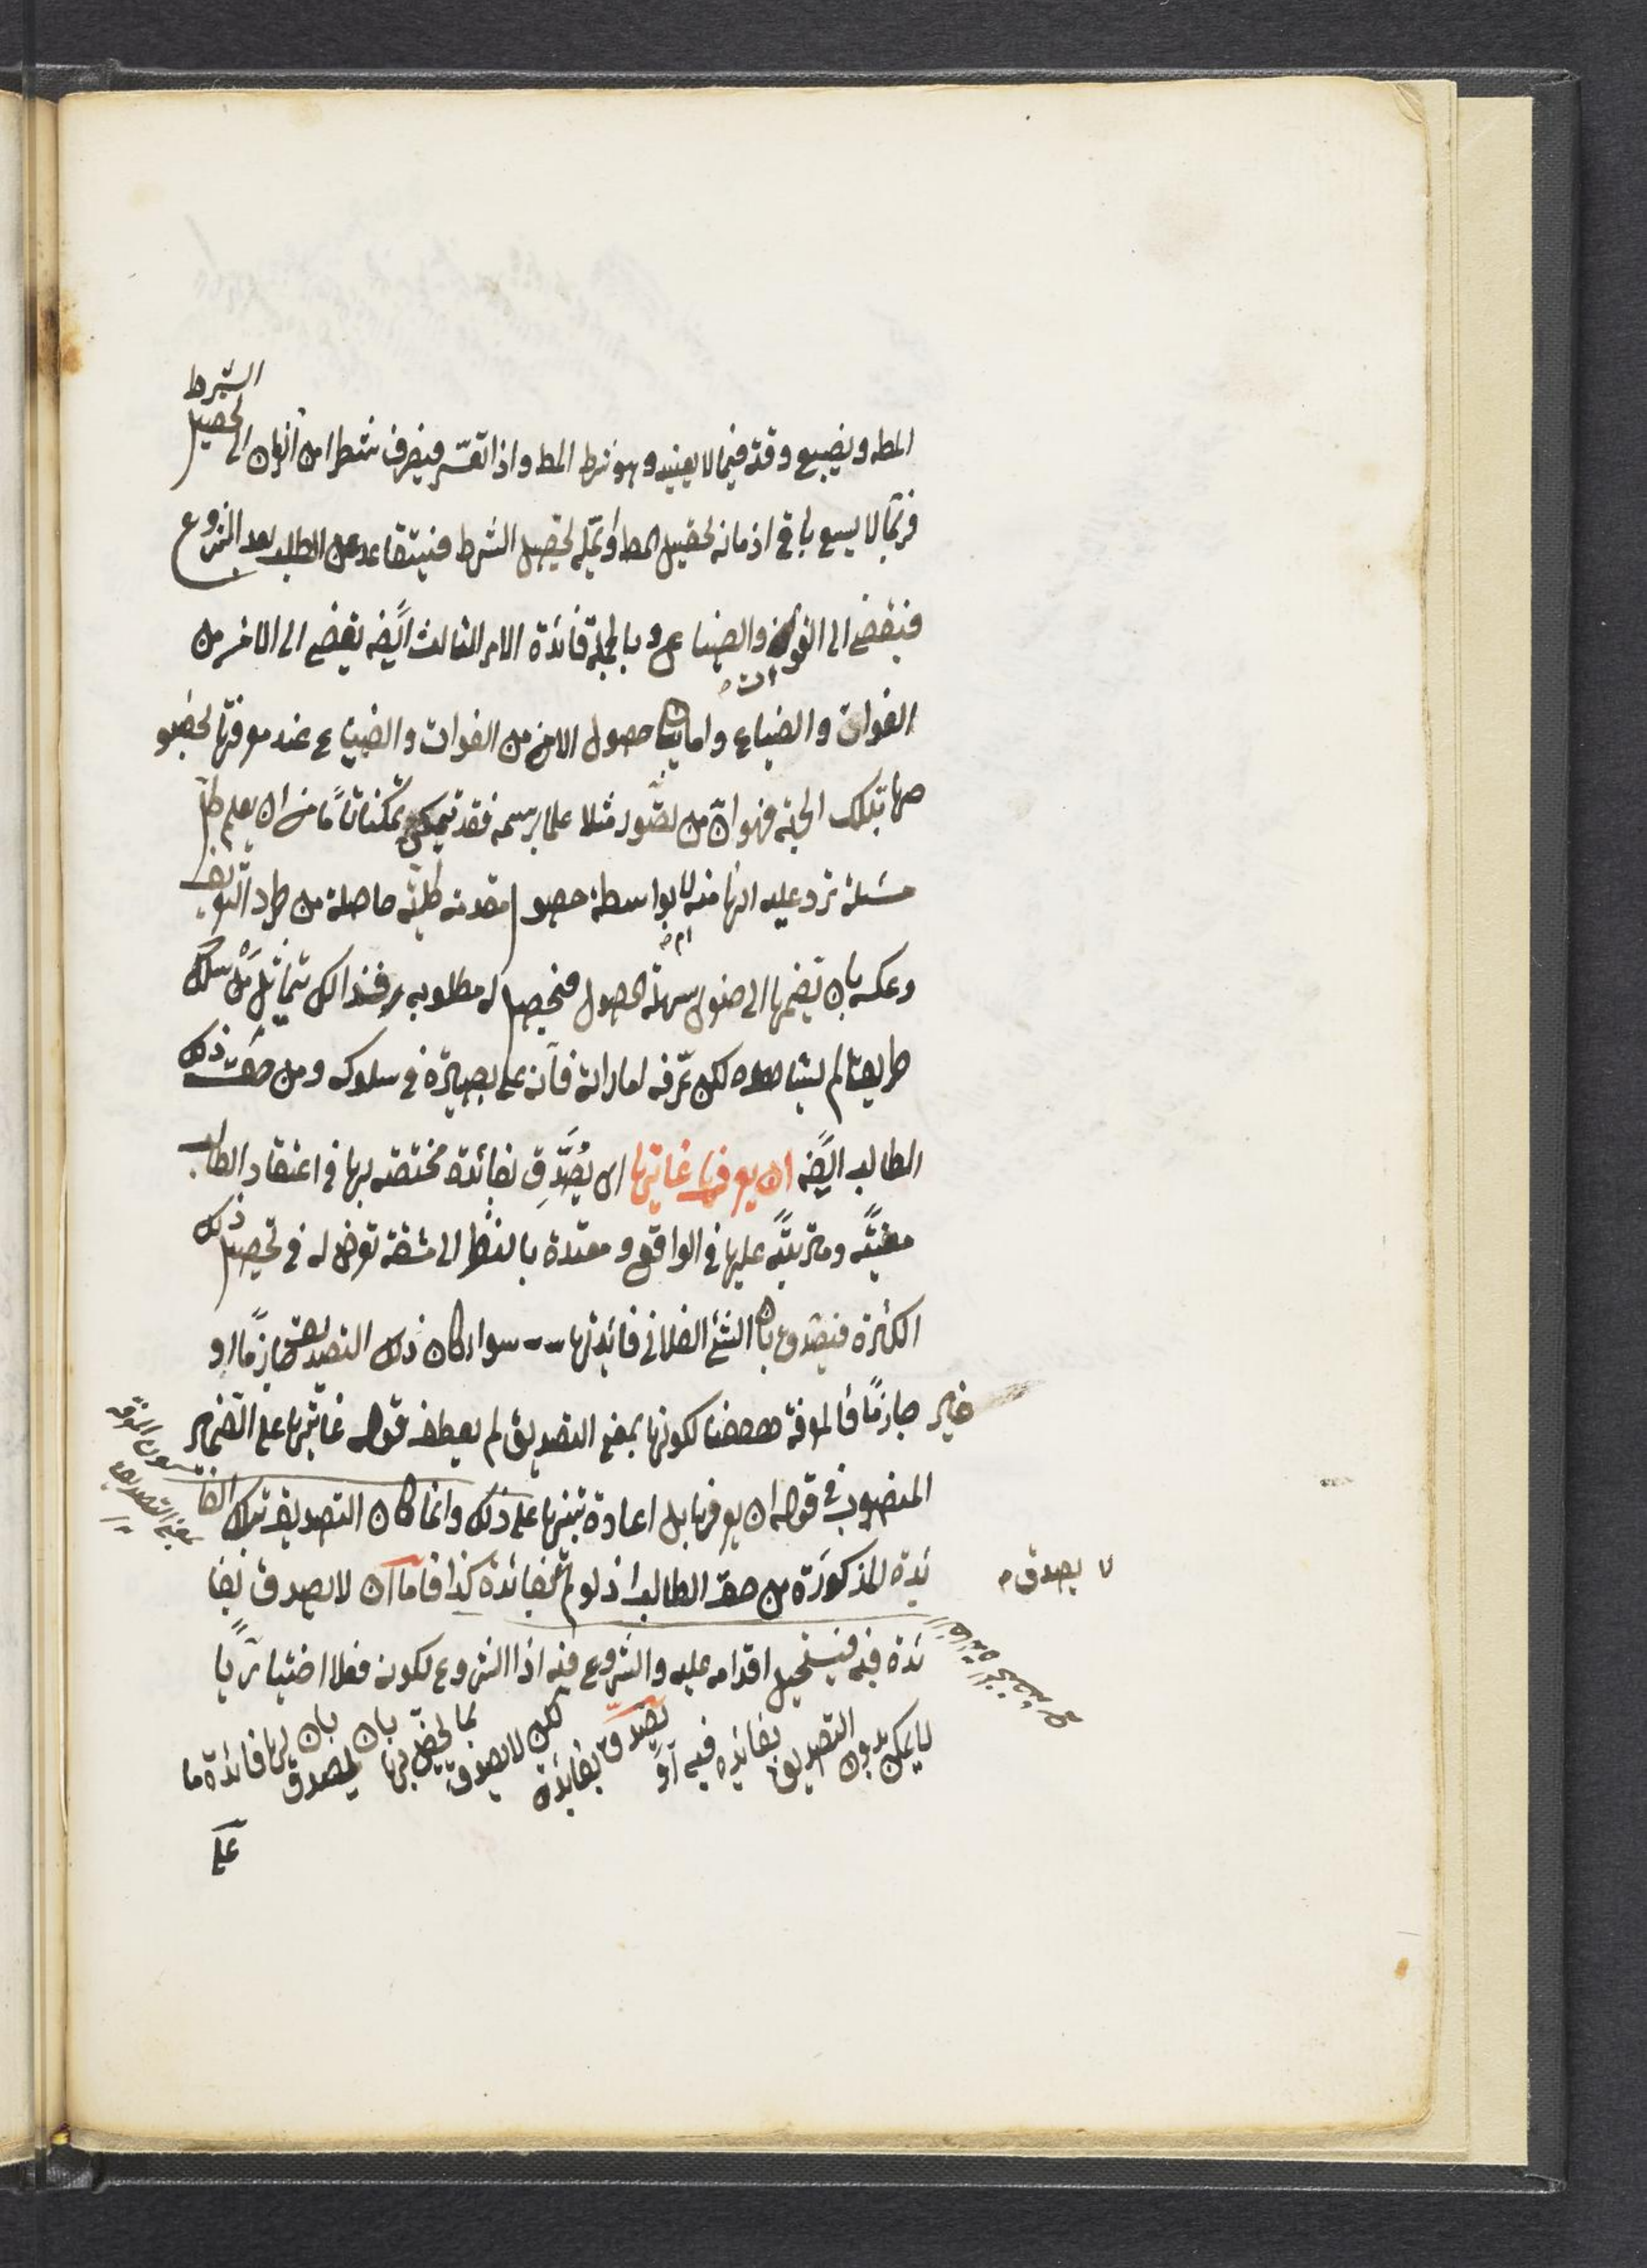 المط ويضيع وقته فيما لا يعنيه وهو شرط المط واذا تعسر فيصرف شطرا من الى تحصيل الشرط
فربما لا يسع باقي ازمانه لتحصيل المط ويمله تحصيل الشرط فيتقاعد عن الطلب بعد الشروع
فيفضي الى الفوات والضياع وبالجملة فائدة الامر الثالث ايضه يفضي الى الامن من
الفوات والضياع واما بيان حصول الامن من الفوات والضياع عند معرفتها بخصو
صها بتلك الجهة فهو ان من تصور مثلا علما برسمه فقد تمكن تمكنا تاما من ان يعلم كل
مسئلة ترد عليه انها منه ام لا بواسطة حصول مقدمة كلية حاصلة من طرد التعريف
وعكسه بان تضمها الى صغرى سهلة الحصول فيحصل له مطلوبه فذالك يماثل من سلك
طريقا لم يشاهده لكن عرفه اماراته فانه على بصيرة في سلوكه ومن حق ذلك
الطالب ايضه ان يعرفها غايتها اى يصدق بفائدة مختصه بها في اعتقاد الطالب
معينه ومترتبه عليها في الواقع ومعتدة بالنظر الى مشقة تعرض له في تحصيل ذلك
الكثرة فيصدق بان الشئ الفلاني فائدتها سواء كان ذلك التصديق جازما او
غير جازما فالمعرفة ههنا لكونها بمعنى التصديق لم يعطف قوله غايتها على الضمير
المنصوب في قوله ان يعرفها بل اعادة تنبيها على ذلك وانما كان التصديق بتلك الفا
ئدة المذكورة من حق الطالب اذ لو لم بفائدة كذا فاما ان لا يصدق بفا
لا يصدق
ئدة فيه فيستحيل اقدامه عليه والشروع فيه اذ الشروع لكونه فعلا اختياريا
لا يمكن بدون التصديق بفائدة فيه او يصدق بفائدة لكن لا يصدق بما يخص بها بان يصدق بان لها فائدة ما
على
بمعنى التصديق